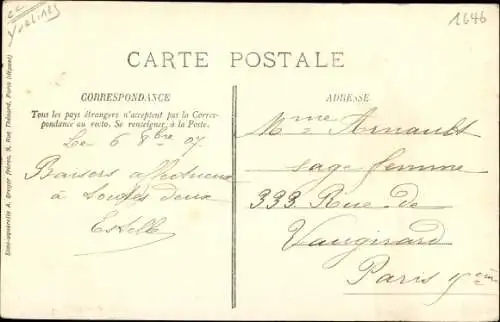 cc
Yvelines
1646
CARTE POSTALE
CORRESPONDANCE
Tous les pays étrangers n'acceptent pas la Corres-
pondance au recto. Se renseigner, à la Poste.
Le 6 8bre 07
Baisers affectueux
à toutes deux
Estelle
ADRESSE
Mme Arnault
sage femme
333 Rue de
Vaugirard
Paris 15eme
A. Breger frères, 9, Rue Thénard, Paris